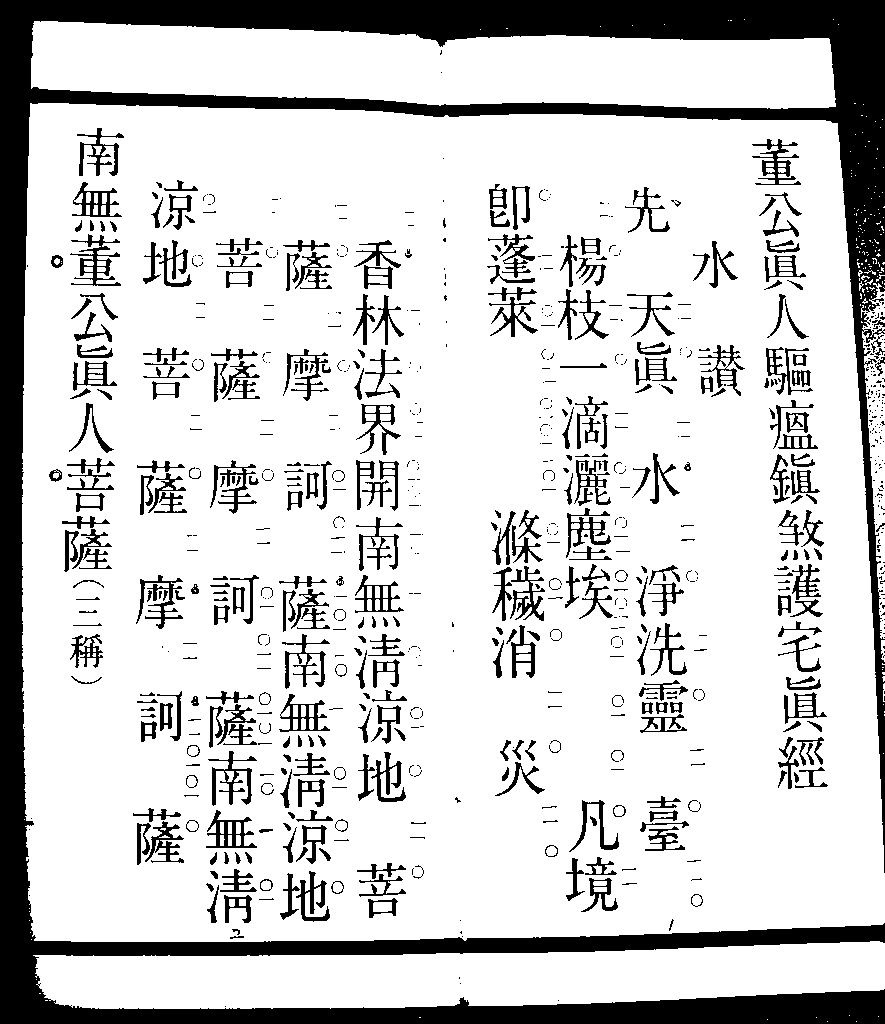 董公眞人驅瘟鎭煞護宅眞經
水讃
先天眞水淨洗靈臺
楊枝一滴灑塵埃凡境
即蓬萊滌穢消災
香林法界開南無淸涼地菩
薩摩訶薩南無淸涼地
菩薩摩訶薩南無淸
涼地菩薩摩訶薩
南無董公眞人菩薩(三稱)
1
2